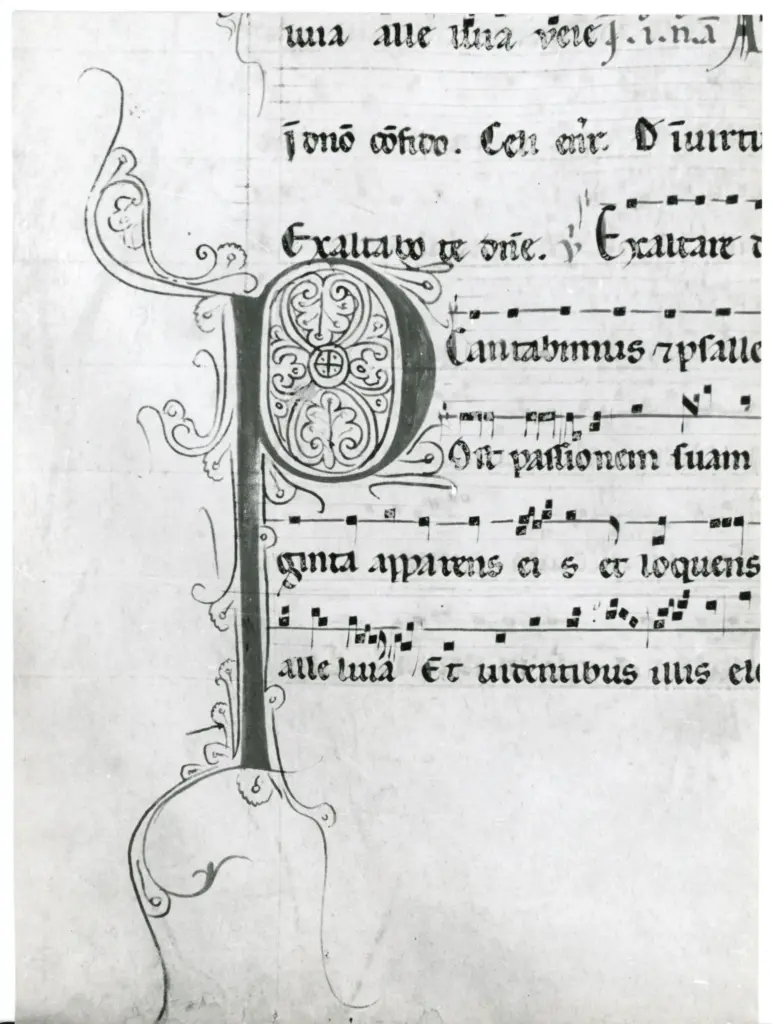 luia alle luia
J dnō cōfido. Celi enr̄. D̄
Exaltabo te dn̄e. ℣ Exaltare d
Cantabimus ⁊ psalle
P Ost passionem suam
ginta apparens ei s et loquens
alle luia Et uidentibus illis ele